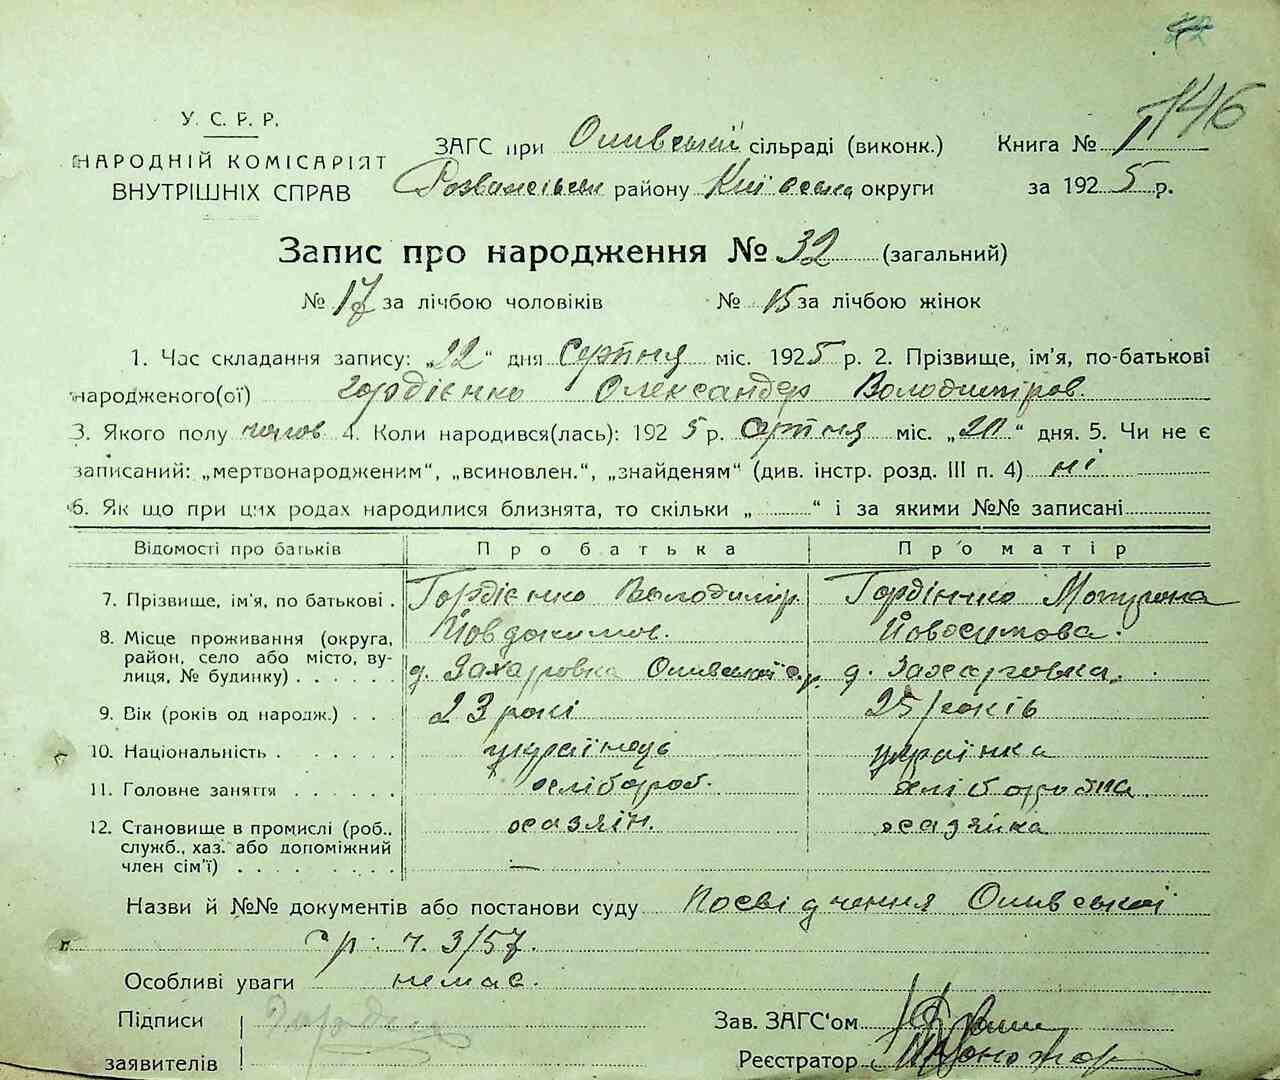 146
У. С. Р. Р.
НАРОДНІЙ КОМІСАРІЯТ
ВНУТРІШНІХ СПРАВ
ЗАГС при Оливській сільраді (виконк.)
району Київська округи
Книга № 1
за 1925 р.
Запис про народження № 32 (загальний)
№ 17 за лічбою чоловіків № 15 за лічбою жінок
1. Час складання запису: „22“ дня Серпня міс. 1925 р. 2. Прізвище, ім'я, по-батькові
народженого(ої) Гордієнко Олександер Володимиров.
3. Якого полу чолов 4. Коли народився(лась): 1925 р. Серпня міс. „20“ дня. 5. Чи не є
записаний: „мертвонародженим“, „всиновлен.“, „знайденям“ (див. інстр. розд. III п. 4) ні
6. Як що при цих родах народилися близнята, то скільки „ “ і за якими №№ записані
Відомості про батьків Про батька Про матір
7. Прізвище, ім'я, по батькові . Гордієнко Володимір Гордінко
Йовдокимов.
8. Місце проживання (округа, район, село або місто, вулиця, № будинку) . . . . . д. Захаровка Оливської с.р. д. Захаровка.
9. Вік (років од народж.) . . 23 рокі 25 років
10. Національність . . . . . . . українець українка
11. Головне заняття . . . . . . хлібороб. хліборобка
12. Становище в промислі (роб., служб., хаз. або допоміжний член сім'ї) . . . . . . . . —
Назви й №№ документів або постанови суду Посвідчення Оливської
с/р. ч. 3/57.
Особливі уваги немає.
Підписи
заявителів
Зав. ЗАГС'ом
Реєстратор